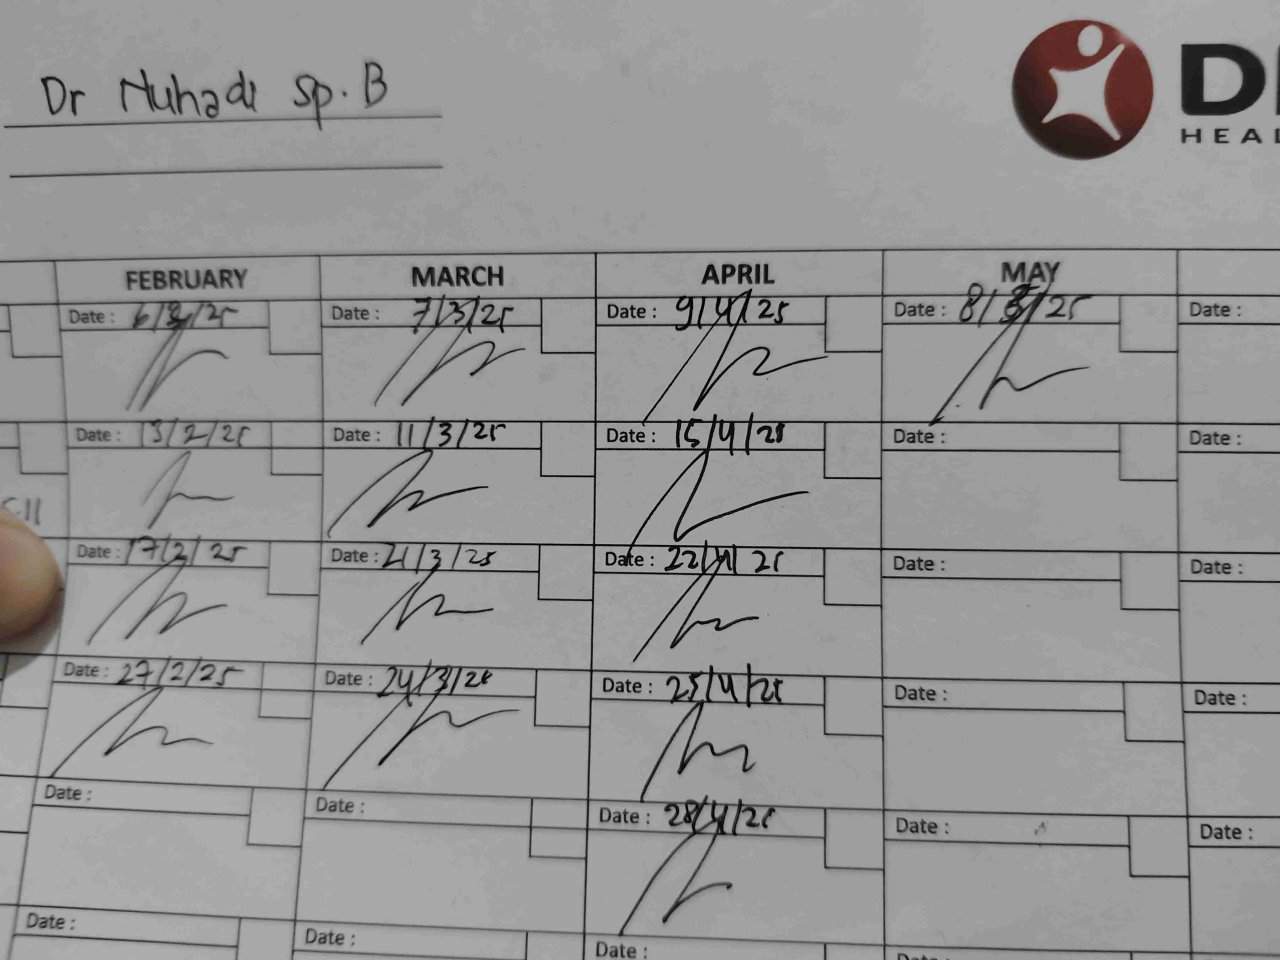 Dr Nuhadi Sp.B
D
HEAL
FEBRUARY MARCH APRIL MAY
Date : 6/2/25 Date : 7/3/25 Date : 9/4/25 Date : 8/5/25 Date :
Date : 13/2/25 Date : 11/3/25 Date : 15/4/25 Date : Date :
Date : 17/2/25 Date : 21/3/25 Date : 22/4/25 Date : Date :
Date : 27/2/25 Date : 24/3/25 Date : 25/4/25 Date : Date :
Date : Date : Date : 28/4/25 Date : Date :
Date : Date : Date :